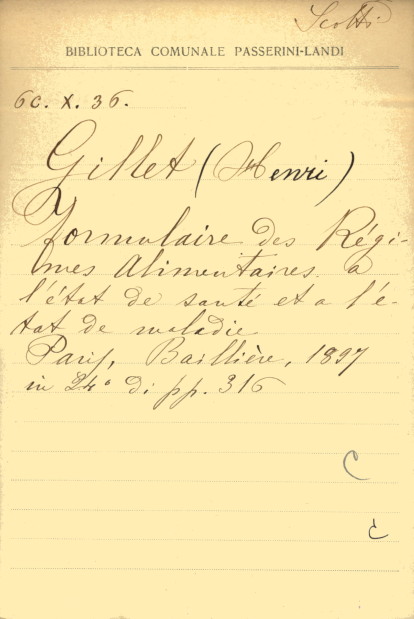 Scotti
BIBLIOTECA COMUNALE PASSERINI-LANDI
6C. X. 36.
Gillet (Henri)
Formulaire des Régi-
mes Alimentaires a
l'état de santé et a l'é-
tat de maladie
Paris, Baillière, 1897
in 24° di pp. 316
C
c